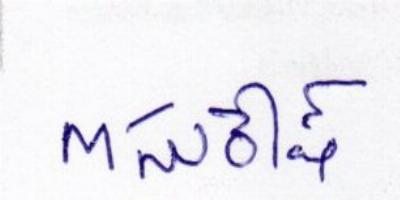 M సురేష్